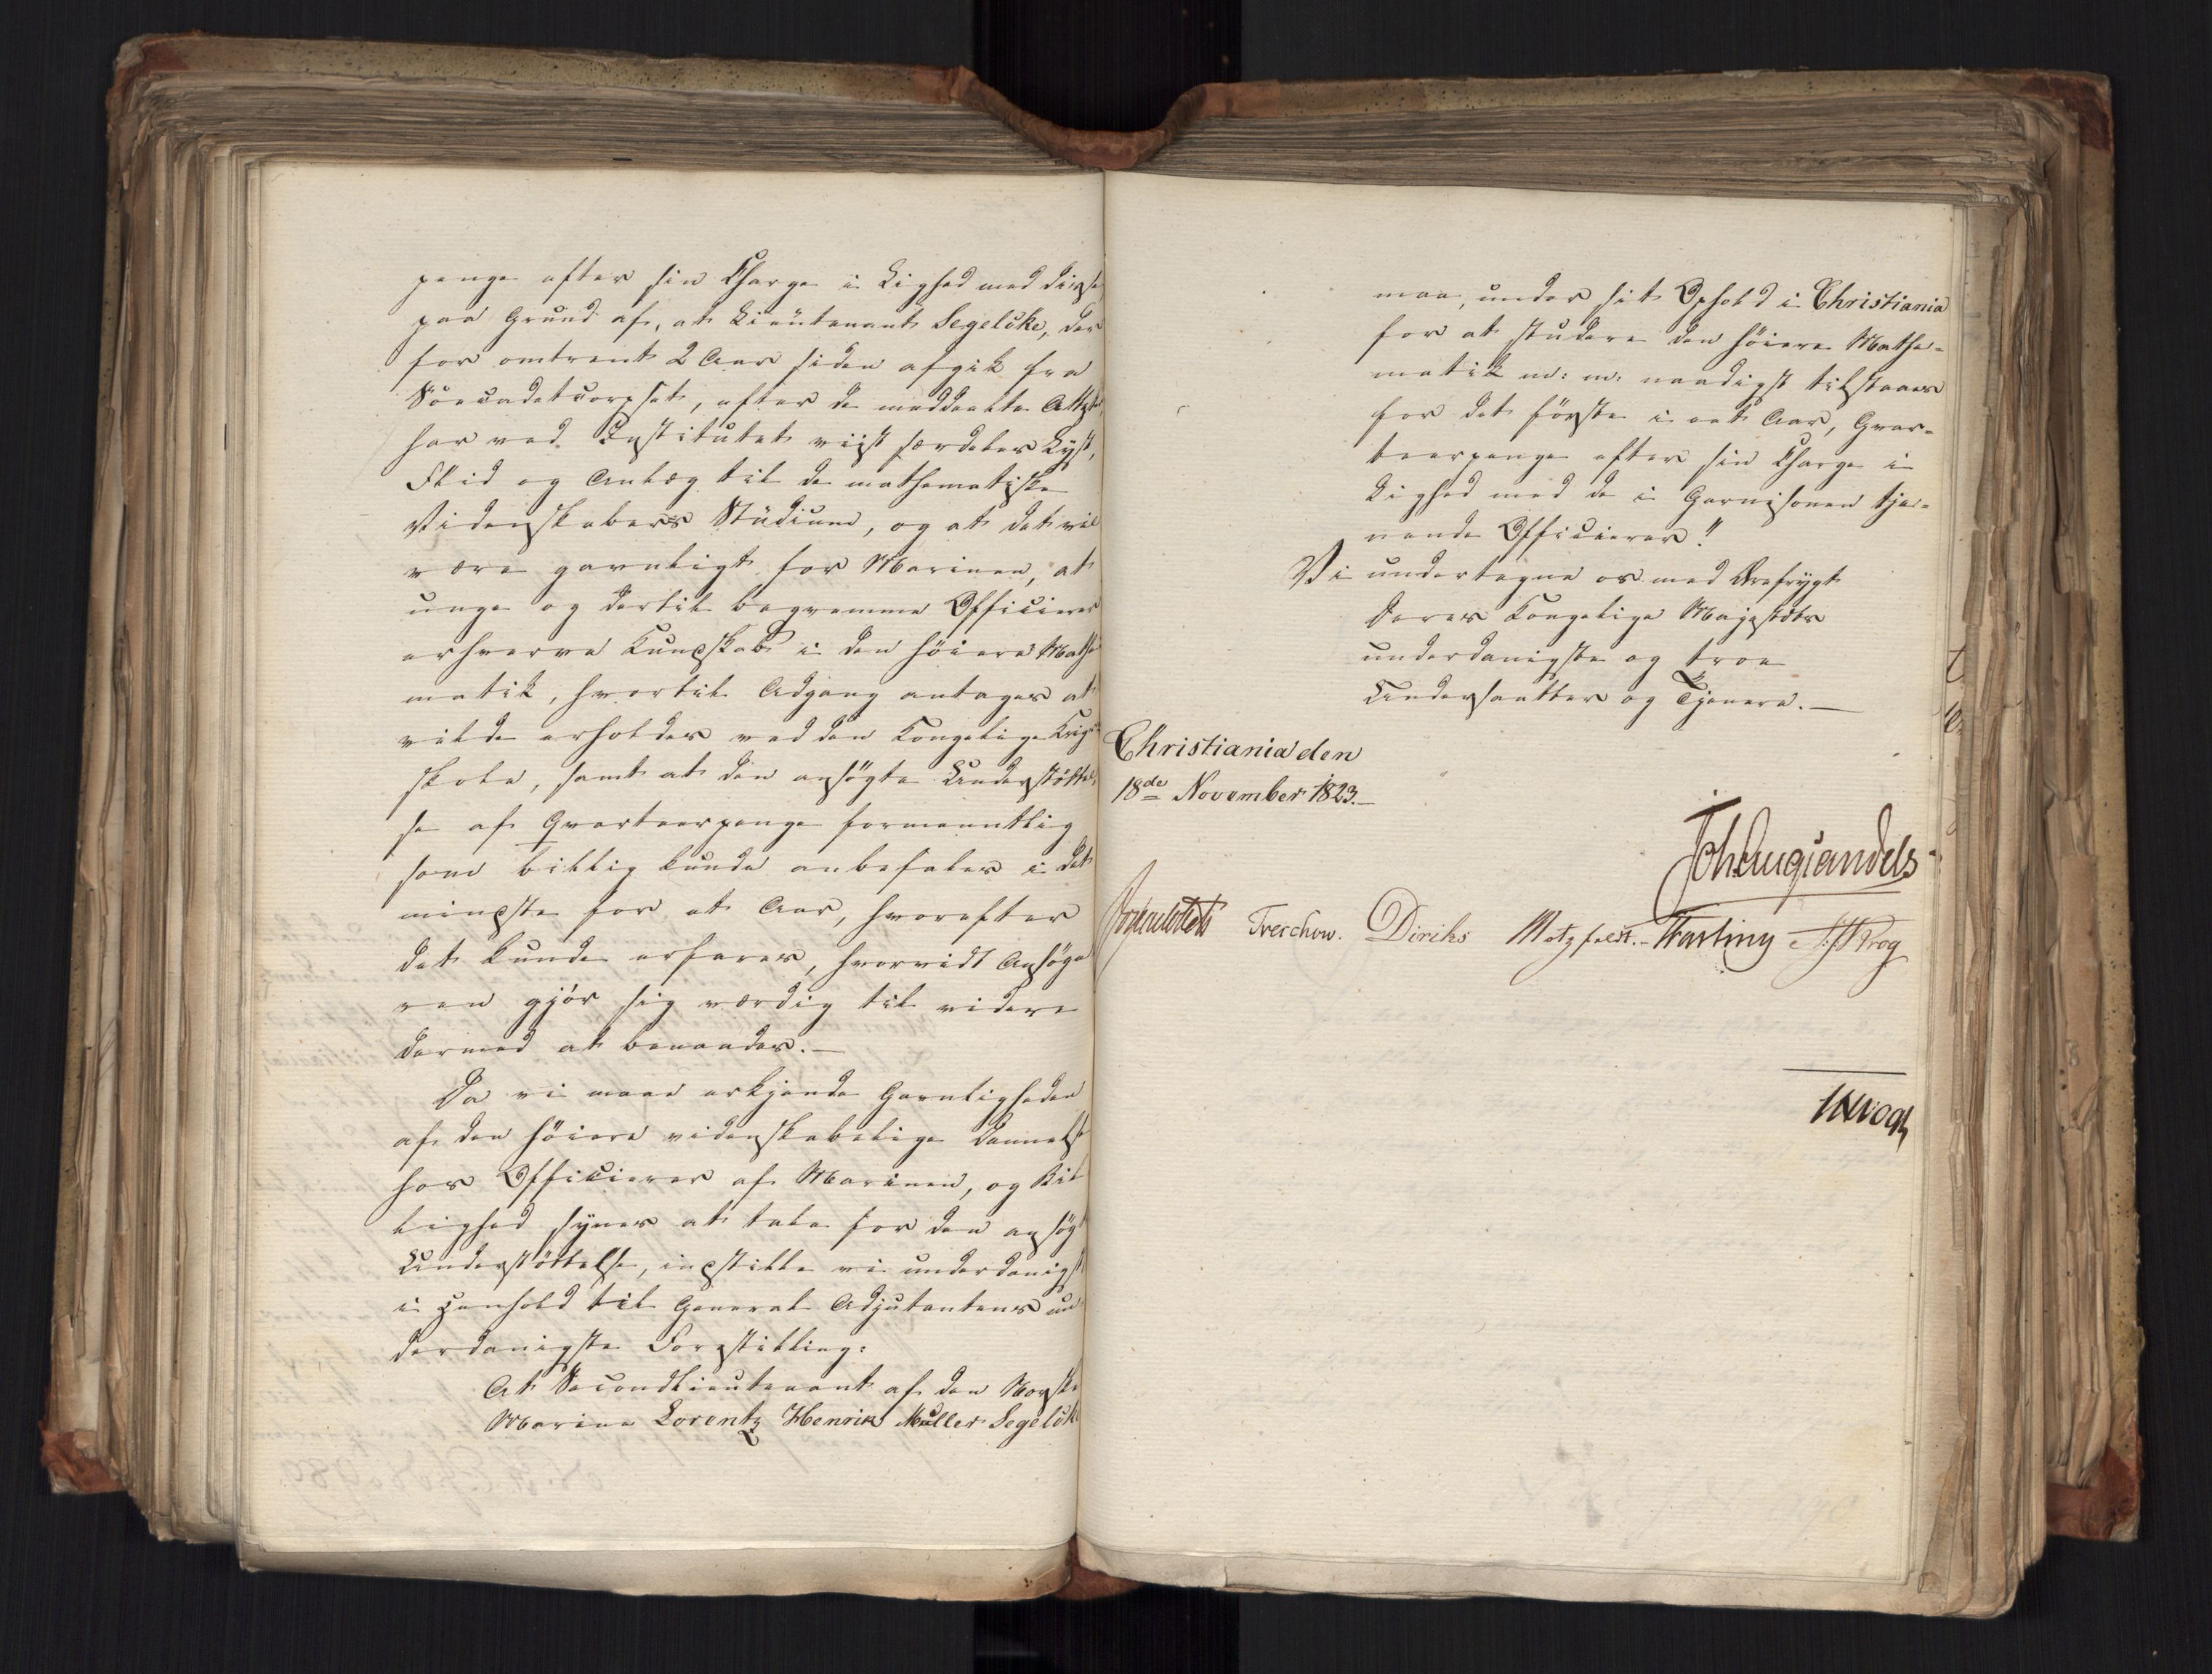 penge efter sin Charge i Lighed med disse
paa Grund af, at Lieutenant Segelcke, der
for omtrent 2 Aar siden afgik fra
Söecadetcorpset, efter de meddeelte Attester
har ved Institutet viist særdeles Lyst,
Flid og Anlæg til de mathematiske
Videnskabers Studium, og at det vil
være gavnligt for Marinen, at
unge og dertil beqvemme Officierer
erhverve Kundskab i den höiere Mathe
matik, hvortil Adgang antages at
vilde erholdes ved den Kongelige Krigs
skole, samt at den ansögte Understöttel
se af Qvarteerpenge formeentlig
som billig kunde anbefales i det
mindste for et Aar, hvorefter
det kunde erfares, hvorvidt Ansöge
ren gjör sig værdig til videre
dermed at benaades.—
Da vi maae erkjende Gavnligheden
af den höiere videnskabelige Dannelse
hos Officierer af Marinen, og Bil
lighed synes at tale for den ansögte
Understöttelse, indstille vi underdanigst
i Henhold til General Adjutantens un
derdanigste Forestilling:
At Secondlieutenant af den Norske
Marine Lorentz Henrik Müller Segelcke
maa, under sit Ophold i Christiania
for at studere den höiere Mathe-
matik m: m: naadigst tilstaaes
for det förste i eet Aar, Qvar-
teerpenge efter sin Charge i
Lighed med de i Garnisonen tje-
nende Officierer."
Vi undertegne os med Ærefrygt
Deres Kongelige Majestæts
underdanigste og troe
Undersaatter og Tjenere.—
Christiania den
18de November 1823.—
Joh Aug Sandels
Treschow. Diriks Motzfeldt.- Fasting A: Krog